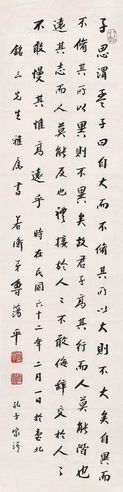 子思謂孟子曰自大而不脩其所以大則不大矣自異而
不脩其所以異則不異矣故君子高其行而人莫能偕也
遠其志而人莫能及也禮接於人人不敢侮辭交於人人
不敢慢其惟高遠乎 時在民國六十二年二月一日於臺北
銘三先生雅屬書 弟 平 孔子家語